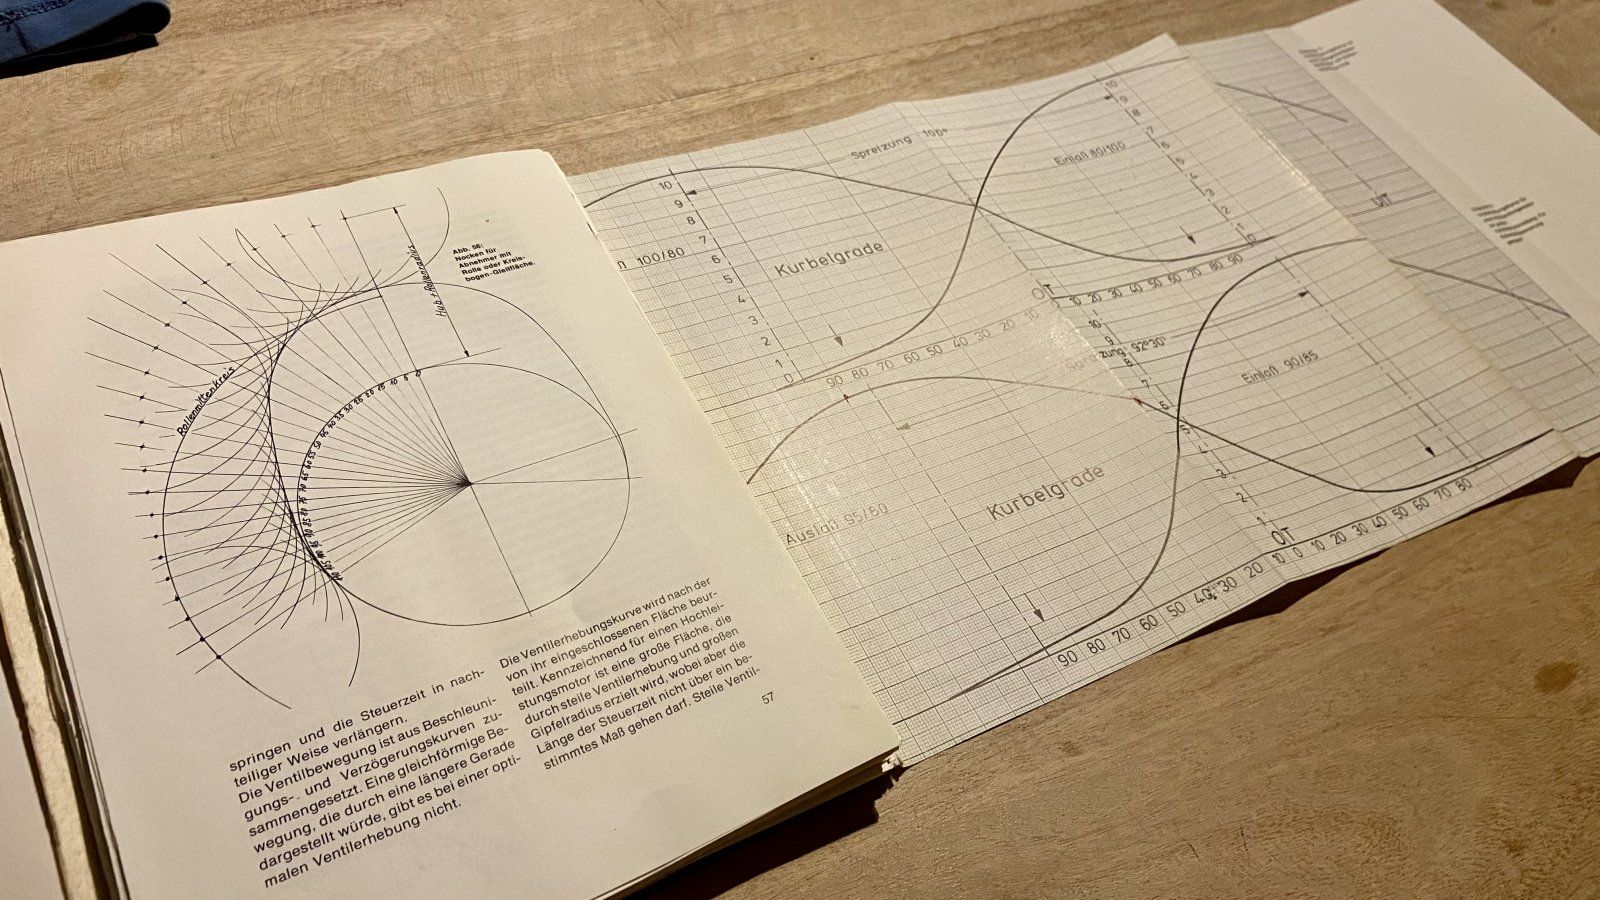 Abb. 56:
Nocken für
Abnehmer mit
Rolle oder Kreis-
bogen-Gleitfläche.
Hub + Rollenradius
Rollenmittenkreis
0 5 10 15 20 25 30 35 40 45 50 55 60 65 70 75 80 85 90 95 100 105 110
springen und die Steuerzeit in nach-
teiliger Weise verlängern.
Die Ventilbewegung ist aus Beschleuni-
gungs- und Verzögerungskurven zu-
sammengesetzt. Eine gleichförmige Be-
wegung, die durch eine längere Gerade
dargestellt würde, gibt es bei einer opti-
malen Ventilerhebung nicht.
Die Ventilerhebungskurve wird nach der
von ihr eingeschlossenen Fläche beur-
teilt. Kennzeichnend für einen Hochlei-
stungsmotor ist eine große Fläche, die
durch steile Ventilerhebung und großen
Gipfelradius erzielt wird, wobei aber die
Länge der Steuerzeit nicht über ein be-
stimmtes Maß gehen darf. Steile Ventil-
57
100/80
10
9
8
7
6
5
4
3
2
1
0
Spreizung 100°
Kurbelgrade
Einlaß 80/100
10
9
8
7
6
5
4
3
2
1
0
90 80 70 60 50 40 30 20 10 OT 10 20 30 40 50 60 70 80 90
UT
Spreizung: 92°30'
Auslaß 95/80
Kurbelgrade
Einlaß 90/85
10
9
8
7
6
5
4
3
2
1
OT
90 80 70 60 50 40 30 20 10 0 10 20 30 40 50 60 70 80